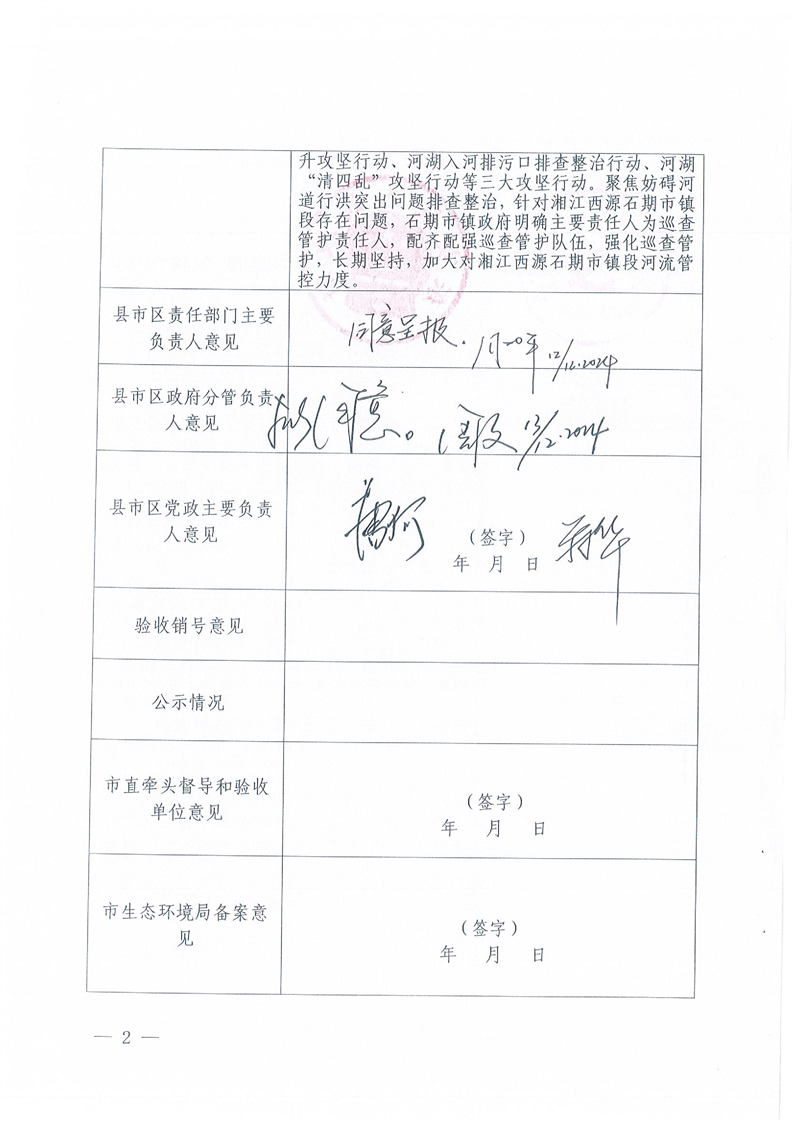 升攻坚行动、河湖入河排污口排查整治行动、河湖
“清四乱”攻坚行动等三大攻坚行动。聚焦妨碍河
道行洪突出问题排查整治，针对湘江西源石期市镇
段存在问题，石期市镇政府明确主要责任人为巡查
管护责任人，配齐配强巡查管护队伍，强化巡查管
护，长期坚持，加大对湘江西源石期市镇段河流管
控力度。
县市区责任部门主要
负责人意见
同意呈报.
12/12.2024
县市区政府分管负责
人意见
同意。
12.2024
县市区党政主要负责
人意见
（签字）
年 月 日
验收销号意见
公示情况
市直牵头督导和验收
单位意见
（签字）
年 月 日
市生态环境局备案意
见
（签字）
年 月 日
— 2 —